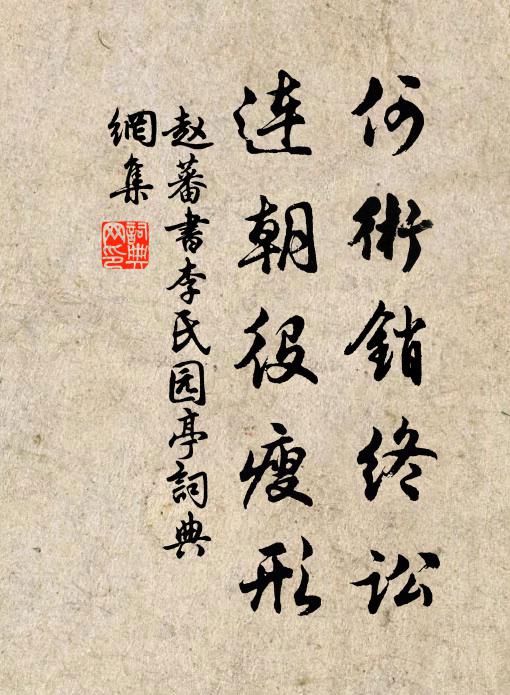 何術銷終訟
連朝役瘦形
赵蕃書李氏园亭詞典
網集
詞典
网印